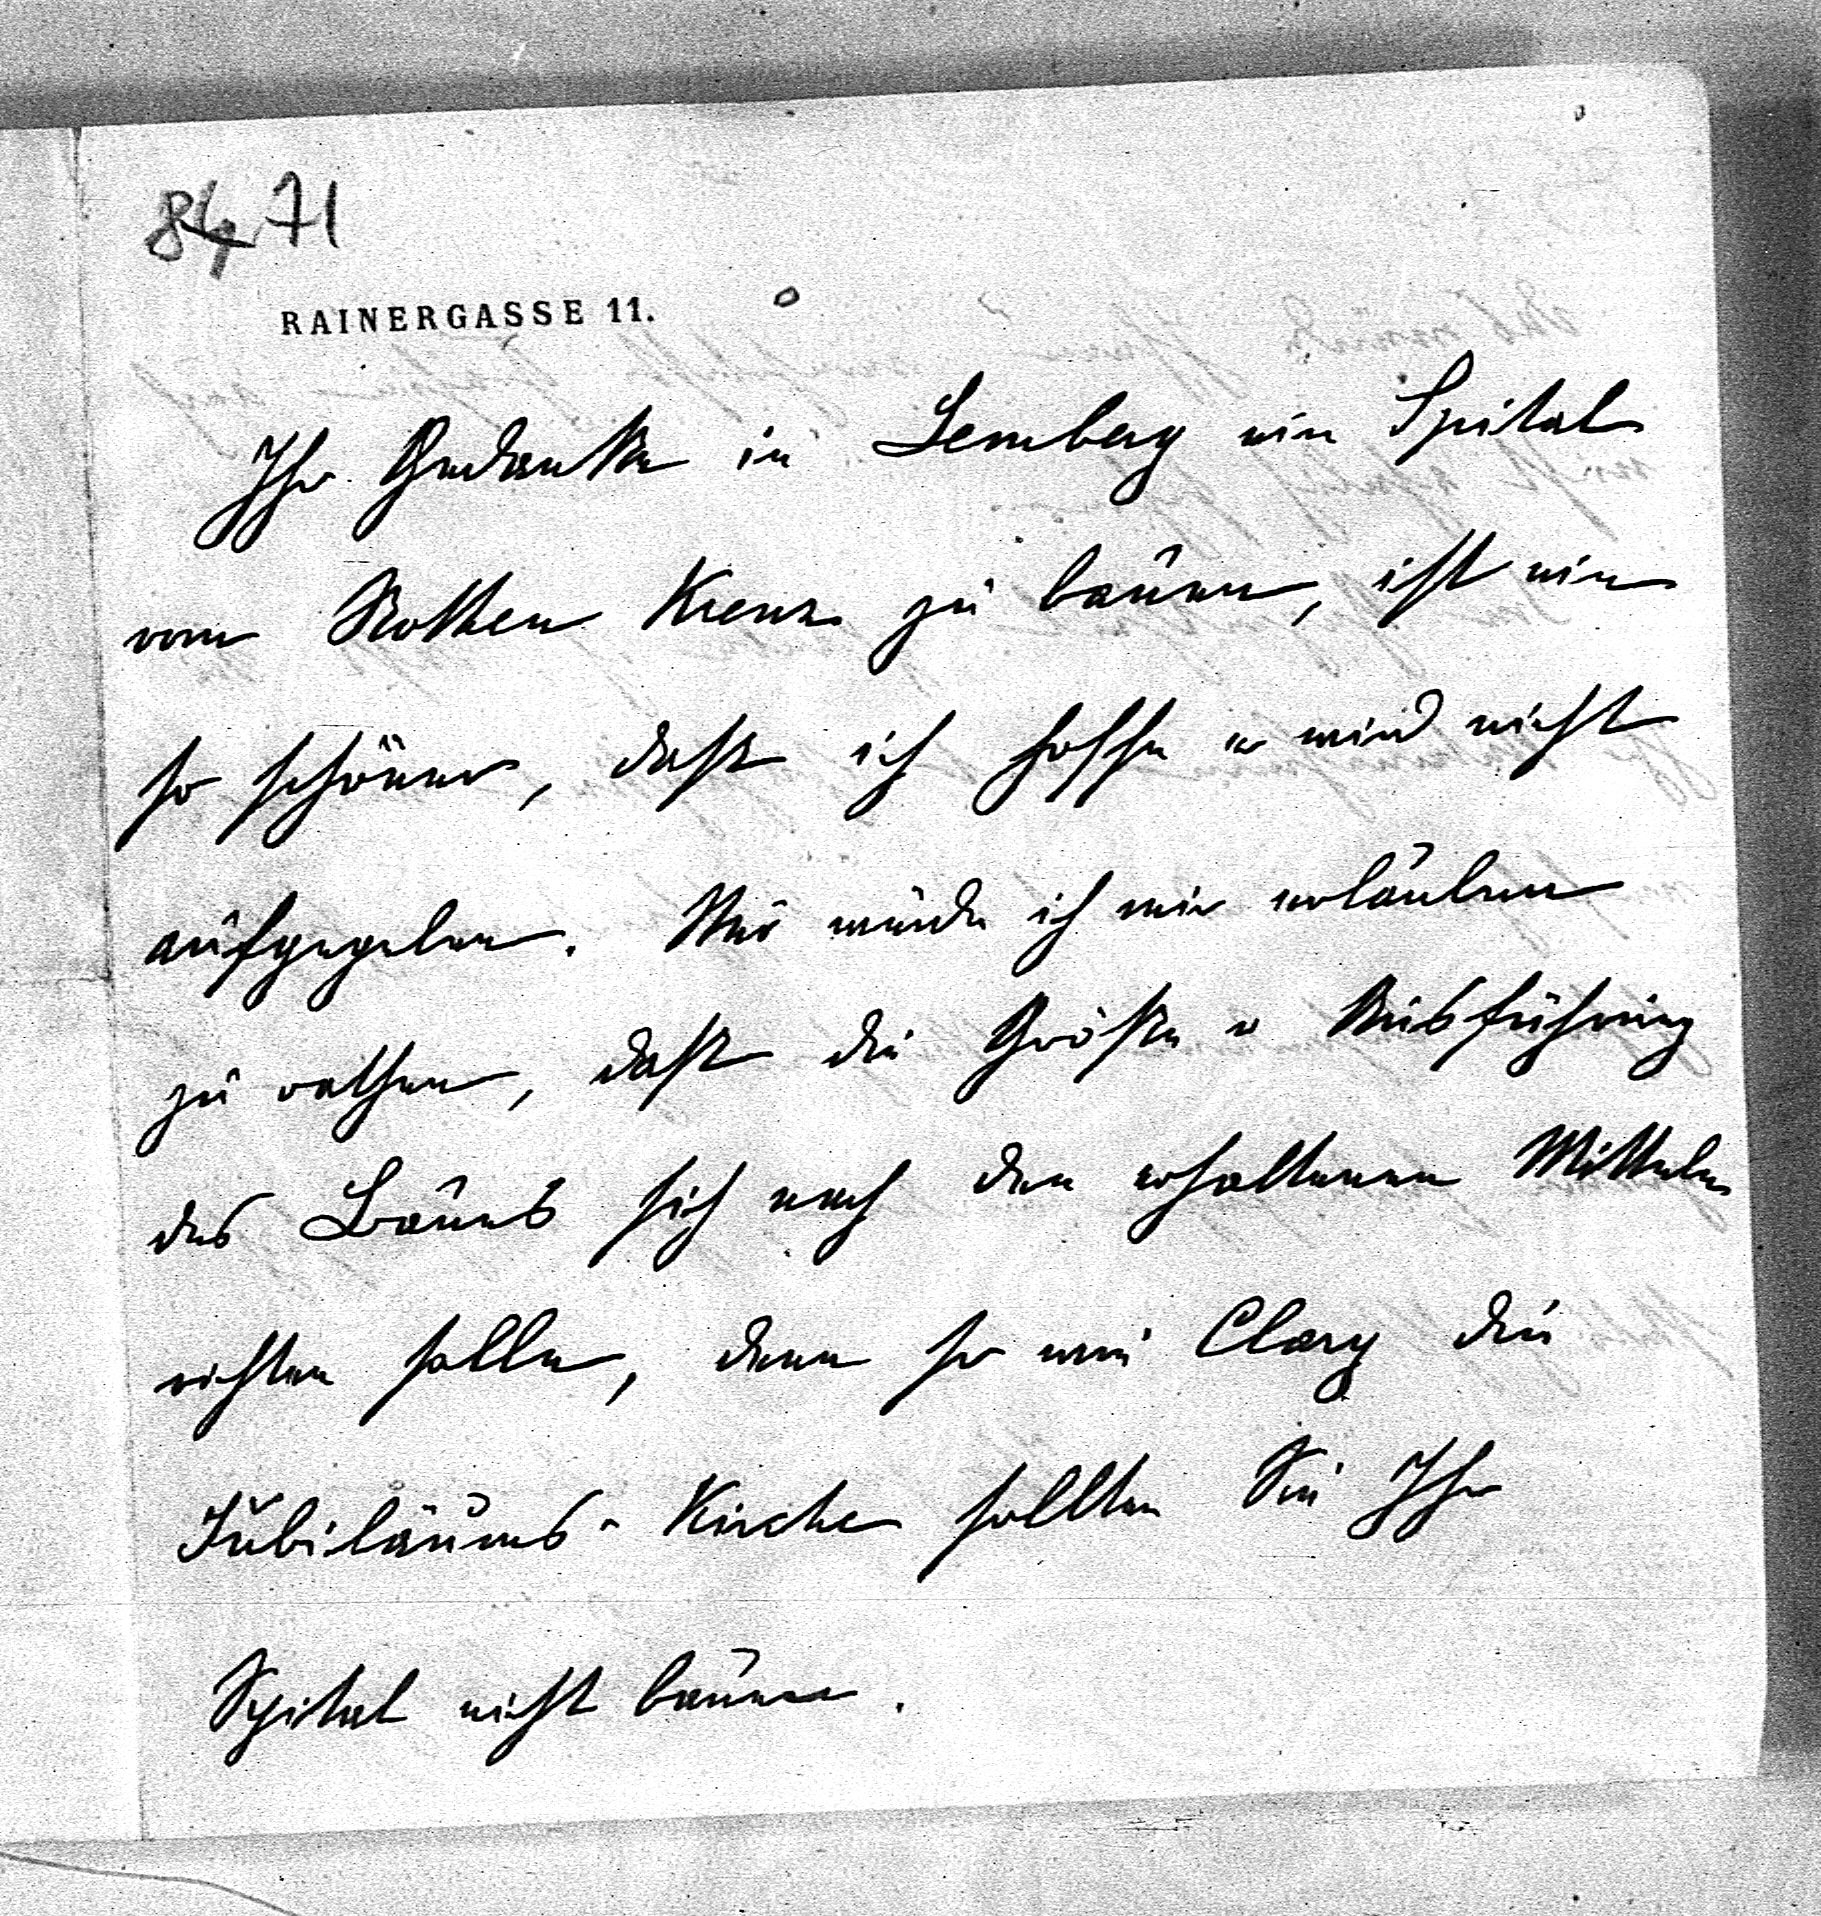 84 71
RAINERGASSE 11.
Ihr Gedanke in Lemberg ein Spital
vom Rothen Kreuz zu bauen, ist ein
so schöner, daß ich hoffe er wird nicht
aufgegeben. Nur würde ich mir erlauben
zu rathen, daß die Größe u Ausführung
des Baues sich nach den erhaltenen Mitteln
richten solle, denn so wie Clary die
Jubiläums-Kirche sollten Sie Ihr
Spital nicht bauen.